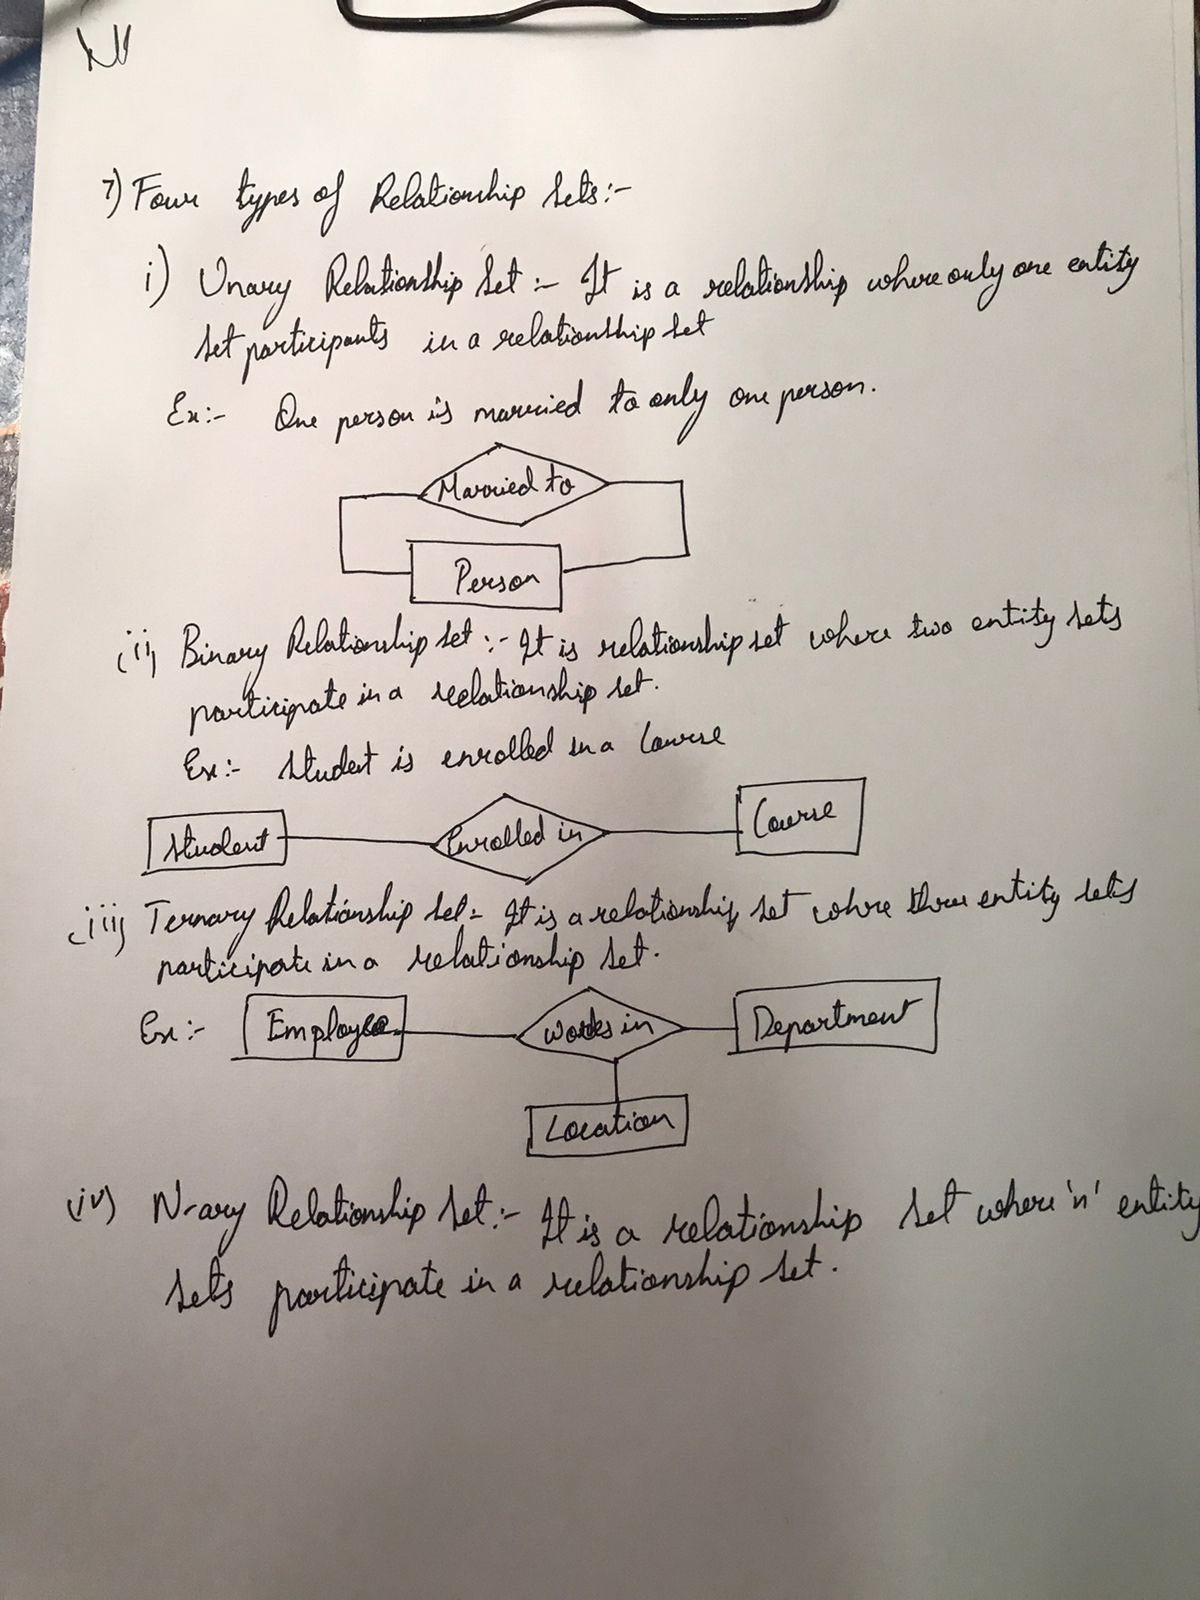 7) Four types of Relationship Sets:-
i) Unary Relationship Set :- It is a relationship where only one entity
set participants in a relationship set
Ex:- One person is married to only one person.
Married to
Person
(ii) Binary Relationship set :- It is relationship set where two entity sets
participate in a relationship set.
Ex:- Student is enrolled in a Course
Student Enrolled in Course
(iii) Ternary Relationship Set:- It is a relationship set where three entity sets
participate in a relationship set.
Ex:- Employee works in Department
Location
(iv) N-ary Relationship Set:- It is a relationship set where 'n' entity
sets participate in a relationship set.